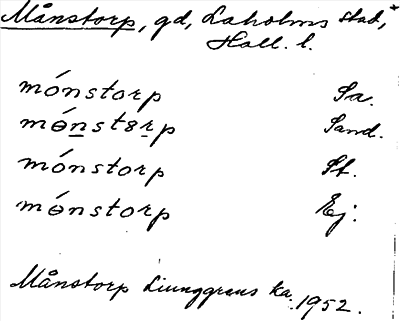 Månstorp, gd, Laholms stad,*
Hall. l.
mónstorp Sa.
mɵ́nstɞrp Sand.
mónstorp St.
mɵ́nstorp Ej.
Månstorp Ljunggrens ka. 1952.